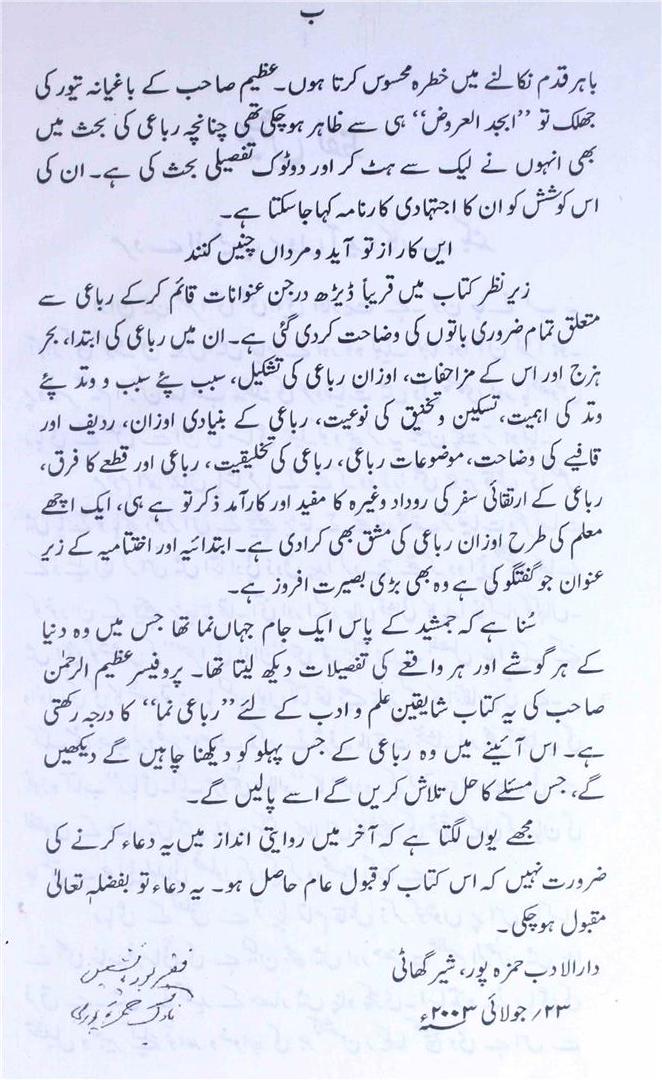 ب
باہر قدم نکالنے میں خطرہ محسوس کرتا ہوں۔ عظیم صاحب کے باغیانہ تیور کی
جھلک تو ”ابجد العروض“ ہی سے ظاہر ہوچکی تھی چنانچہ رباعی کی بحث میں
بھی انہوں نے لیک سے ہٹ کر اور دوٹوک تفصیلی بحث کی ہے۔ ان کی
اس کوشش کو ان کا اجتہادی کارنامہ کہا جاسکتا ہے۔
ایں کار از تو آید و مرداں چنیں کنند
زیر نظر کتاب میں قریباً ڈیڑھ درجن عنوانات قائم کرکے رباعی سے
متعلق تمام ضروری باتوں کی وضاحت کردی گئی ہے۔ ان میں رباعی کی ابتدا، بحر
ہزج اور اس کے مزاحفات، اوزان رباعی کی تشکیل، سبب پئے سبب و وتد پئے
وتد کی اہمیت، تسکین و تخنیق کی نوعیت، رباعی کے بنیادی اوزان، ردیف اور
قافیے کی وضاحت، موضوعات رباعی، رباعی کی تخلیقیت، رباعی اور قطعے کا فرق،
رباعی کے ارتقائی سفر کی روداد وغیرہ کا مفید اور کارآمد ذکر تو ہے ہی، ایک اچھے
معلم کی طرح اوزان رباعی کی مشق بھی کرادی ہے۔ ابتدائیہ اور اختتامیہ کے زیر
عنوان جو گفتگو کی ہے وہ بھی بڑی بصیرت افروز ہے۔
سُنا ہے کہ جمشید کے پاس ایک جام جہاں نما تھا جس میں وہ دنیا
کے ہر گوشے اور ہر واقعے کی تفصیلات دیکھ لیتا تھا۔ پروفیسر عظیم الرحمٰن
صاحب کی یہ کتاب شایقین علم و ادب کے لئے ”رباعی نما“ کا درجہ رکھتی
ہے۔ اس آئینے میں وہ رباعی کے جس پہلو کو دیکھنا چاہیں گے دیکھیں
گے، جس مسئلے کا حل تلاش کریں گے اسے پالیں گے۔
مجھے یوں لگتا ہے کہ آخر میں روایتی انداز میں یہ دعاء کرنے کی
ضرورت نہیں کہ اس کتاب کو قبول عام حاصل ہو۔ یہ دعاء تو بفضلہٖ تعالیٰ
مقبول ہوچکی۔
دارالادب حمزہ پور، شیر گھاٹی
۲۳؍ جولائی ۲۰۰۳ء
ناوک حمزہ پوری